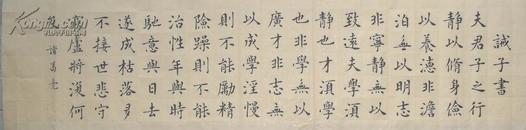 誡子書
夫君子之行
靜以脩身儉
以養德非澹
泊無以明志
非寧靜無以
致遠夫學須
靜也才須學
也非學無以
廣才非志無
以成學淫慢
則不能勵精
險躁則不能
治性年與時
馳意與日去
遂成枯落多
不接世悲守
窮廬將復何
及
諸葛亮